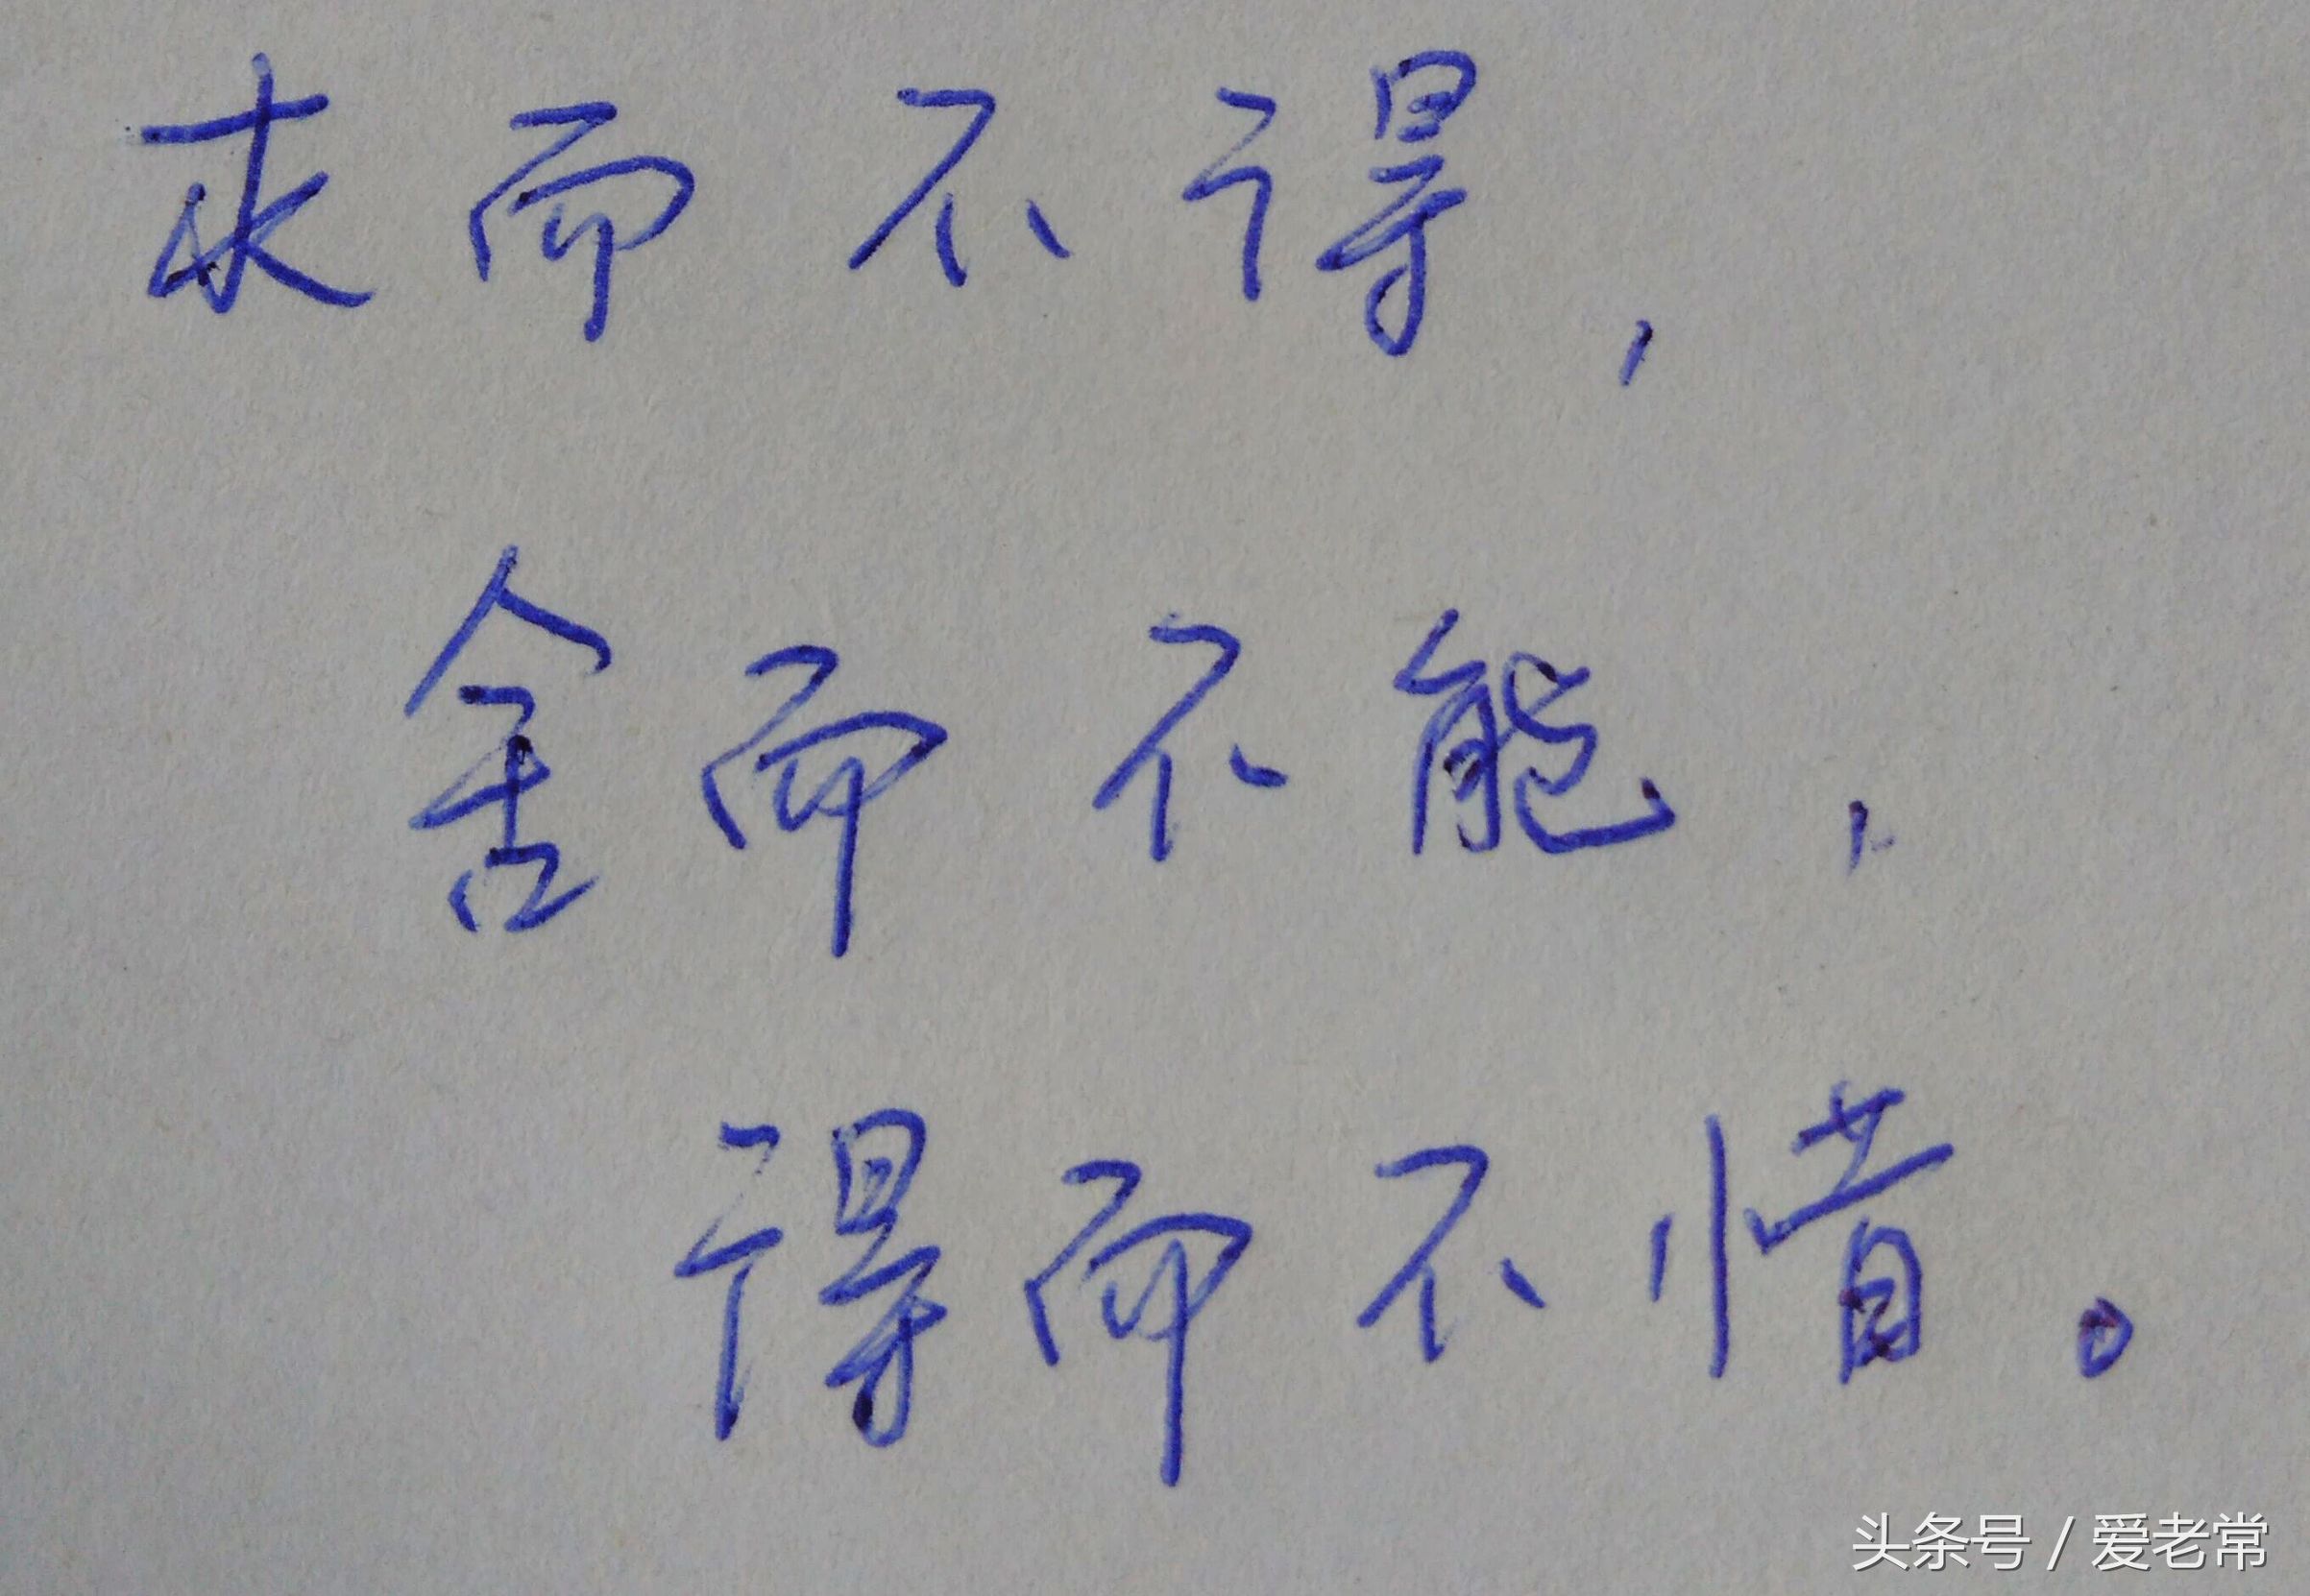 求而不得,
舍而不能,
得而不惜。
头条号 / 爱老常